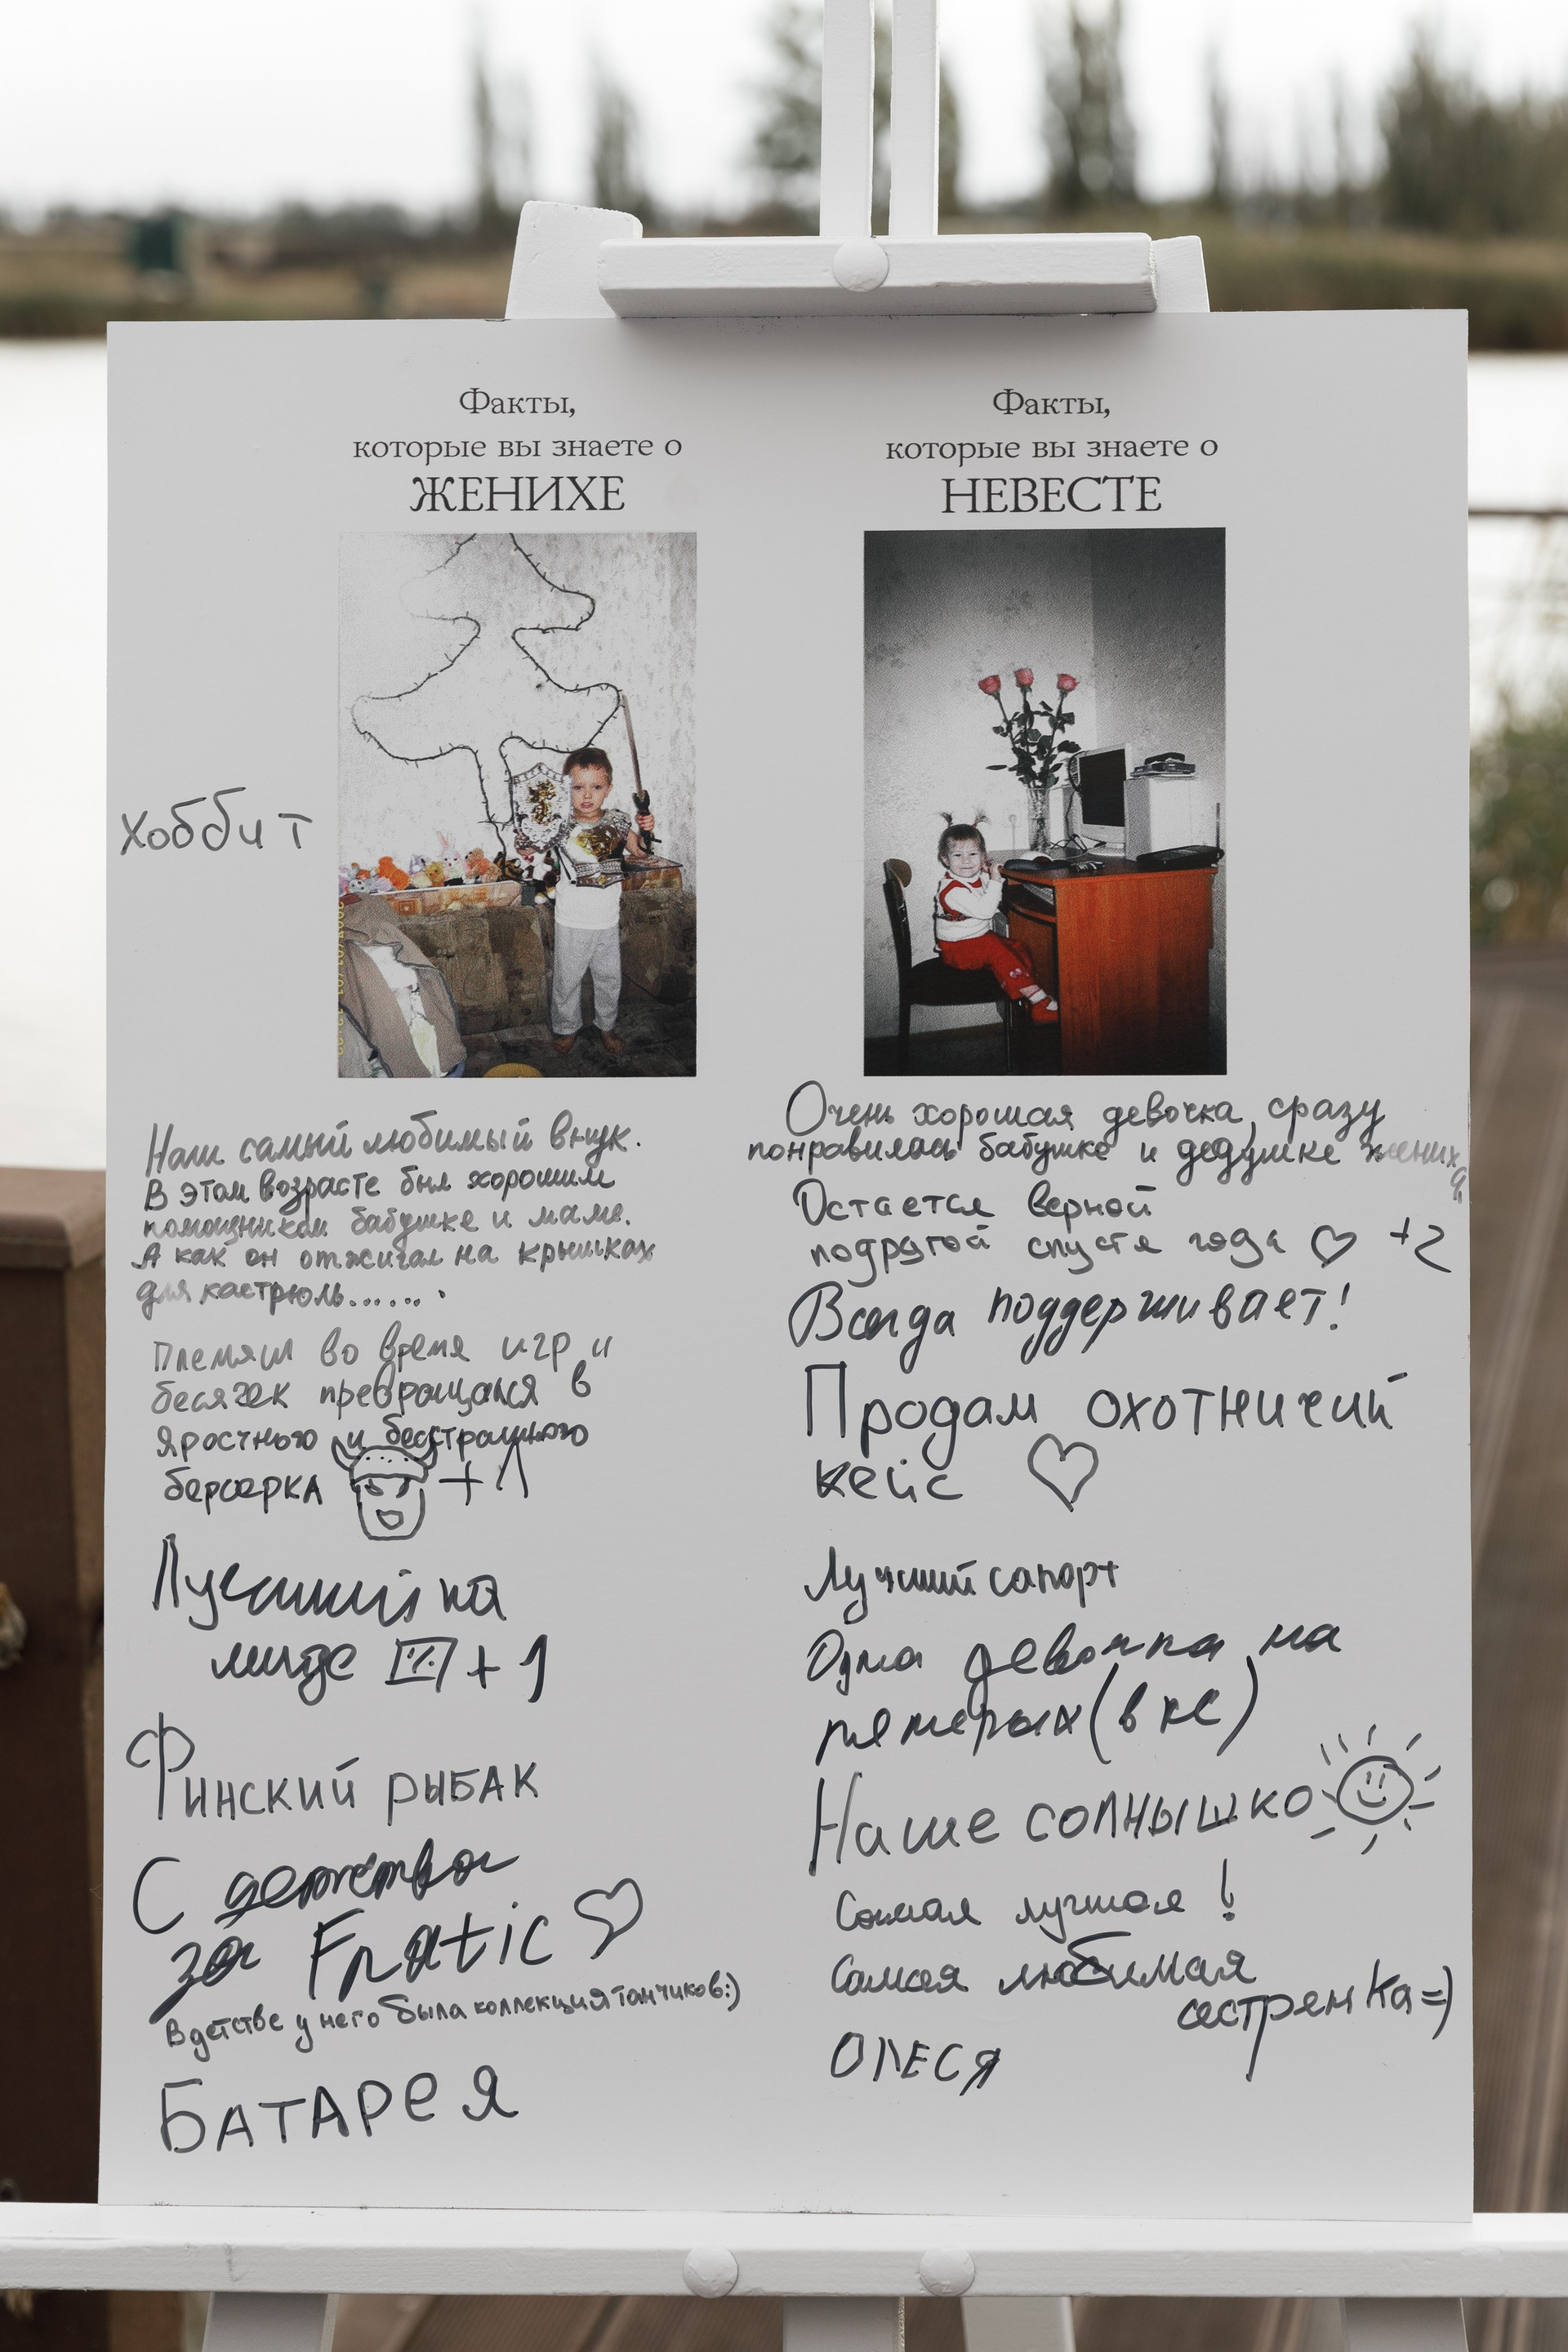 Факты,
которые вы знаете о
ЖЕНИХЕ
Хоббит
Наш самый любимый внук.
В этом возрасте был хорошим
помощником бабушке и маме.
А как он отжигал на крышках
для кастрюль.......
Племяш во время игр и
бесячек превращался в
яростного и бесстрашного
берсерка +1
Лучший на
миде +1
Финский рыбак
С детства
за Fnatic ♡
В детстве у него была коллекция танчиков:)
БАТАРЕЯ
Факты,
которые вы знаете о
НЕВЕСТЕ
Очень хорошая девочка, сразу
понравилась бабушке и дедушке жениха.
Остается верной
подругой спустя года ♡ +2
Всегда поддерживает!
Продам охотничий
кейс ♡
Лучший сапорт
Одна девочка на
пятерых (в кс)
Наше солнышко
Самая лучшая!
Самая любимая
сестренка=)
ОЛЕСЯ